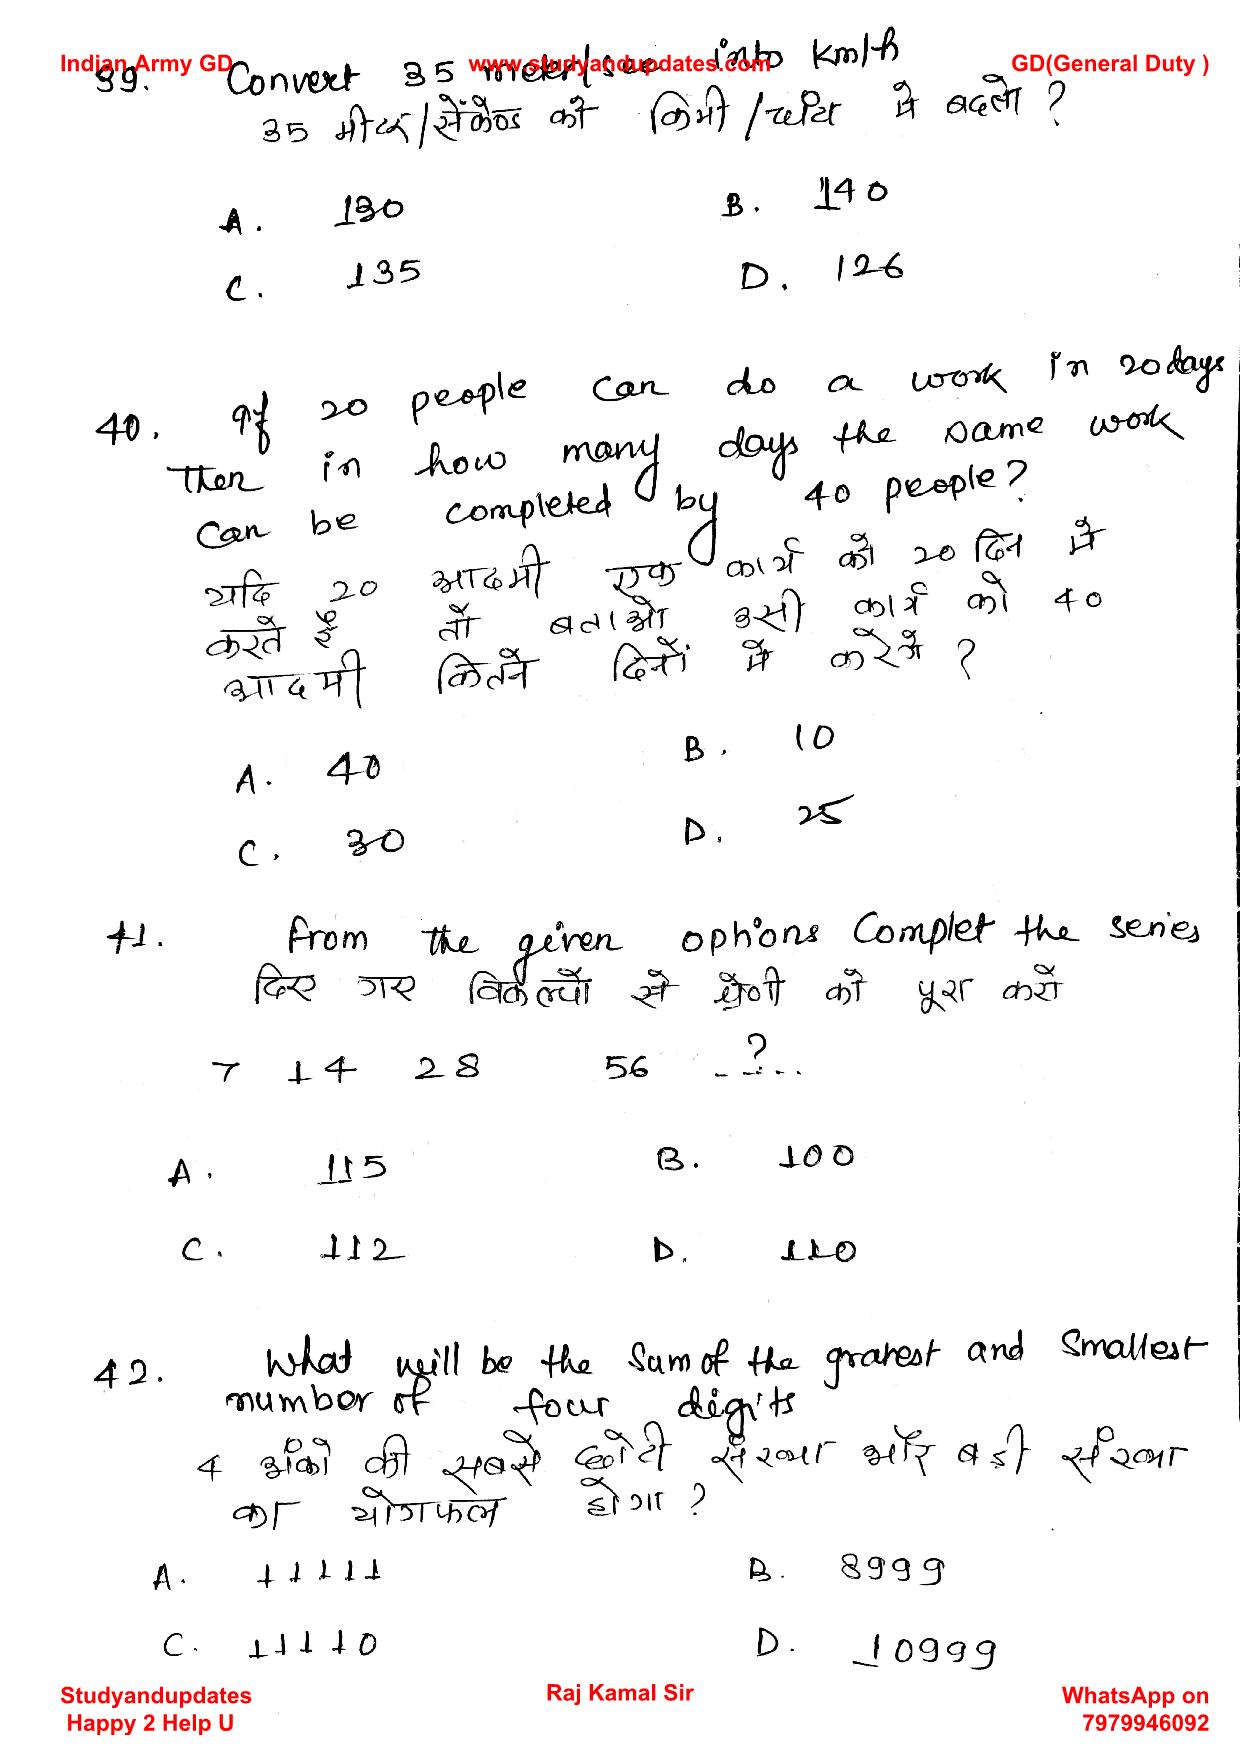 Indian Army GD www.studyandupdates.com GD(General Duty )
39. Convert 35 meter/sec into Km/h
35 मीटर/सेकेंण्ड को किमी/घंटा मे बदलो ?
A. 130 B. 140
C. 135 D. 126
40. If 20 people can do a work in 20days
Then in how many days the same work
can be completed by 40 people?
यदि 20 आदमी एक कार्य को 20 दिन मे
करते है तो बताओ उसी कार्य को 40
आदमी कितने दिनों मे करेगे ?
A. 40 B. 10
C. 30 D. 25
41. From the given options Complet the series
दिए गए विकल्पो से श्रेणी को पूरा करो
7 14 28 56 --?--
A. 115 B. 100
C. 112 D. 110
42. What will be the Sum of the gratest and Smallest
number of four digits
4 अंको की सबसे छोटी संख्या और बडी संख्या
का योगफल होगा ?
A. 11111 B. 8999
C. 11110 D. 10999
Studyandupdates Raj Kamal Sir WhatsApp on
Happy 2 Help U 7979946092